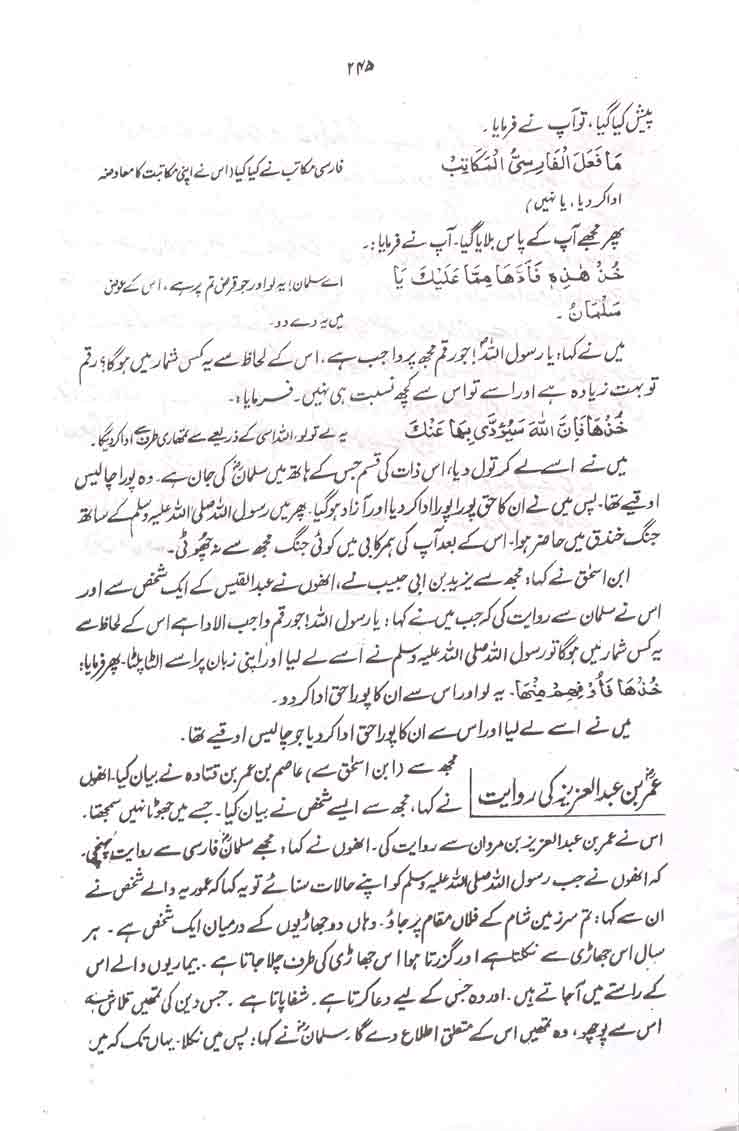 ۲۴۵
پیش کیا گیا، تو آپ نے فرمایا۔
مَا فَعَلَ الْفَارِسِيُّ الْمَكَاتِبُ فارسی مکاتب نے کیا کیا (اس نے اپنی مکاتبت کا معاوضہ
ادا کر دیا، یا نہیں)
پھر مجھے آپ کے پاس بلایا گیا۔ آپ نے فرمایا:۔
خُذْ هٰذِهٖ فَاَدِّهَا مِمَّا عَلَيْكَ يَا اے سلمان! یہ لو اور جو قرض تم پر ہے، اس کے عوض
سَلْمَانُ۔ میں یہ دے دو۔
میں نے کہا: یا رسول اللہ! جو رقم مجھ پر واجب ہے، اس کے لحاظ سے یہ کس شمار میں ہوگا؟ رقم
تو بہت زیادہ ہے اور اسے تو اس سے کچھ نسبت ہی نہیں۔ فرمایا:۔
خُذْهَا فَاِنَّ اللهَ سَيُؤَدِّى بِهَا عَنْكَ یہ لے تو لو، اللہ اسی کے ذریعے سے تمھاری طرف سے ادا کر دیگا۔
میں نے اسے لے کر تول دیا، اس ذات کی قسم جس کے ہاتھ میں سلمانؓ کی جان ہے۔ وہ پورا چالیس
اوقیے تھا۔ پس میں نے ان کا حق پورا پورا ادا کر دیا اور آزاد ہوگیا۔ پھر میں رسول اللہ صلی اللہ علیہ وسلم کے ساتھ
جنگ خندق میں حاضر ہوا۔ اس کے بعد آپ کی ہمرکابی میں کوئی جنگ مجھ سے نہ چھوٹی۔
ابن اسحٰق نے کہا: مجھ سے یزید بن ابی حبیب نے، انھوں نے عبدالقیس کے ایک شخص سے اور
اس نے سلمان سے روایت کی کہ جب میں نے کہا: یا رسول اللہ! جو رقم واجب الادا ہے اس کے لحاظ سے
یہ کس شمار میں ہوگا تو رسول اللہ صلی اللہ علیہ وسلم نے اسے لے لیا اور اپنی زبان پر اسے الٹا پلٹا۔ پھر فرمایا:
خُذْهَا فَأَوْفِهِمْ مِنْهَا۔ یہ لو اور اس سے ان کا پورا حق ادا کر دو۔
میں نے اسے لے لیا اور اس سے ان کا پورا حق ادا کر دیا جو چالیس اوقیے تھا۔
عمرؓ بن عبدالعزیز کی روایت
مجھ سے (ابن اسحٰق سے) عاصم بن عمر بن قتادہ نے بیان کیا۔ انھوں
نے کہا، مجھ سے ایسے شخص نے بیان کیا۔ جسے میں جھوٹا نہیں سمجھتا۔
اس نے عمر بن عبدالعزیز بن مروان سے روایت کی۔ انھوں نے کہا: مجھے سلمانؓ فارسی سے روایت پہنچی۔
کہ انھوں نے جب رسول اللہ صلی اللہ علیہ وسلم کو اپنے حالات سنائے تو یہ کہا کہ عموریہ والے شخص نے
ان سے کہا: تم سرزمین شام کے فلاں مقام پر جاؤ۔ وہاں دو جھاڑیوں کے درمیان ایک شخص ہے۔ ہر
سال اس جھاڑی سے نکلتا ہے اور گزرتا ہوا اس جھاڑی کی طرف چلا جاتا ہے۔ بیماریوں والے اس
کے راستے میں آجاتے ہیں۔ اور وہ جس کے لیے دعا کرتا ہے۔ شفا پاتا ہے۔ جس دین کی تمھیں تلاش ہے
اس سے پوچھو، وہ تمھیں اس کے متعلق اطلاع دے گا۔ سلمانؓ نے کہا: پس میں نکلا۔ یہاں تک کہ میں